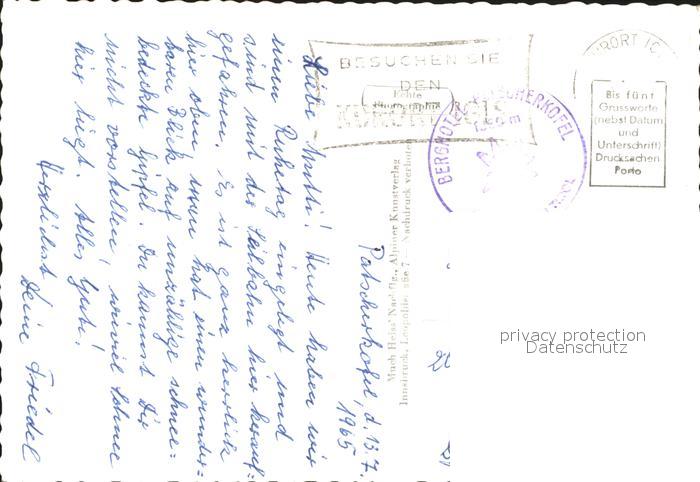 Patscherkofel, d. 13.7.
1965
Liebe Mutti! Heute haben wir
einen Ruhetag eingelegt und
sind mit der Seilbahn hier herauf=
gefahren. Es ist ganz herrlich
hier oben, man hat einen wunder=
baren Blick auf unzählige schnee=
bedeckte Gipfel. Du kannst Dir
nicht vorstellen, wieviel Schnee
hier liegt. Alles Gute!
Herzlichst
Deine Friedel
BESUCHEN SIE
DEN
Echte
Photographie
Much Heiss' Nachflg., Alpiner Kunstverlag
Innsbruck, Nachdruck verboten
PATSCHERKOFEL
Bis fünf
Grussworte
(nebst Datum
und
Unterschrift)
Drucksachen
Porto
privacy protection
Datenschutz